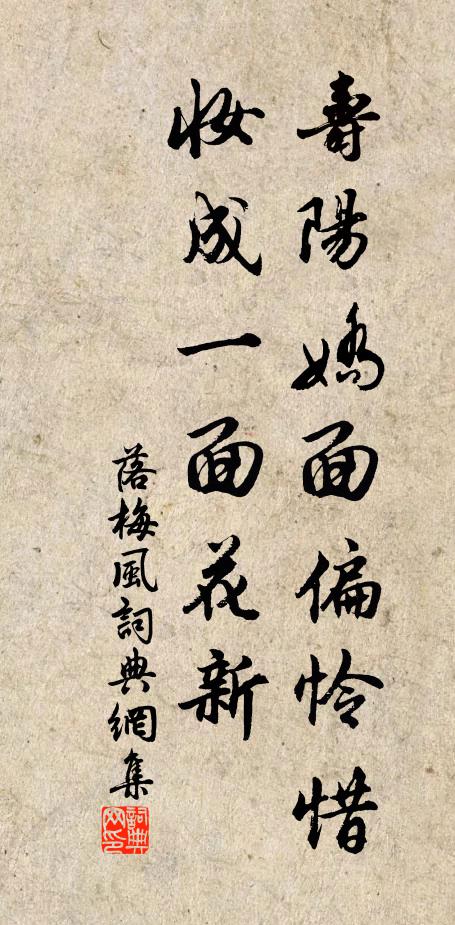 壽陽嬌面偏怜惜
妝成一面花新
落梅風詞典網集
詞典網印